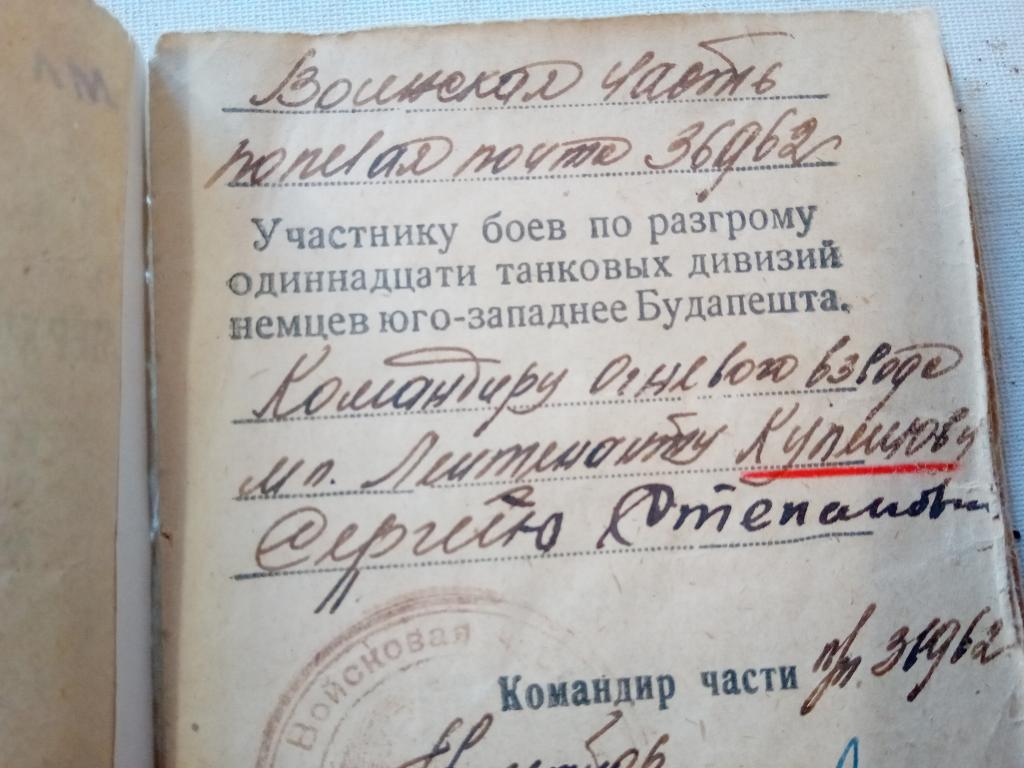 Воинская часть
полевая почта 36962
Участнику боев по разгрому
одиннадцати танковых дивизий
немцев юго-западнее Будапешта.
Командиру огневого взвода
мл. Лейтенанту Купецкову
Сергею Степанович
Войсковая
Командир части п/п. 36962